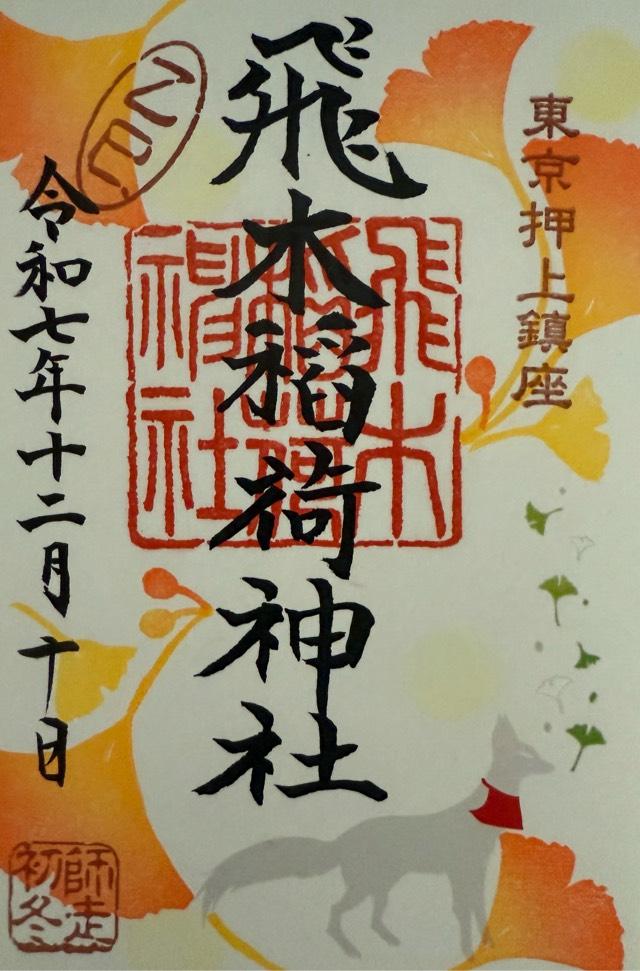 東京押上鎮座
飛木稲荷神社
飛木稲荷神社
令和七年十二月十日
師走
初冬